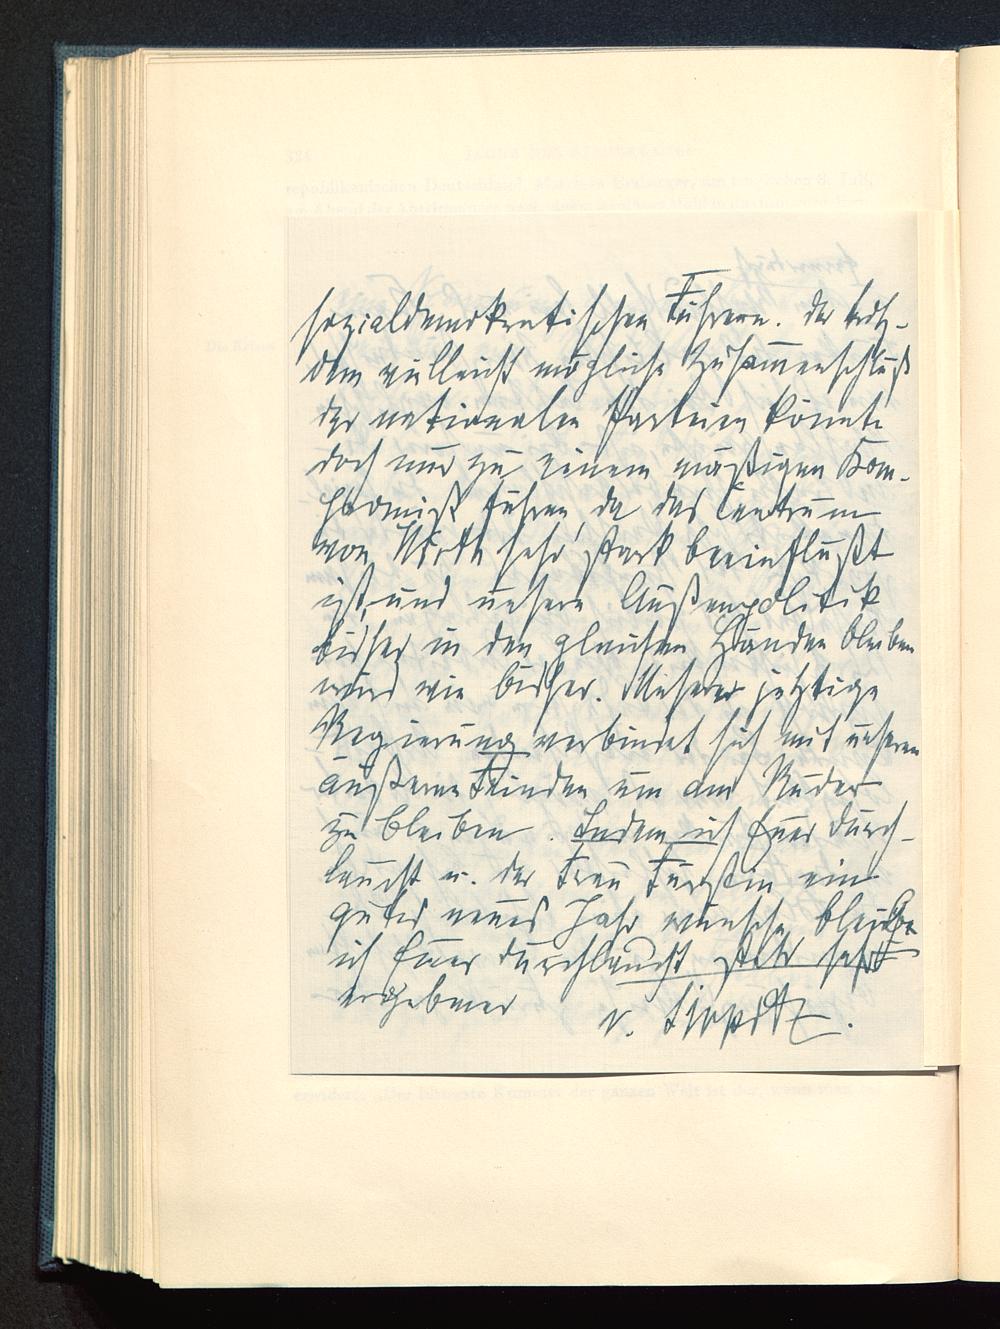 sozialdemokratischen Führern. Der trotz-
dem vielleicht mögliche Zusammenschluß
der nationalen Parteien könnte
doch nur zu einem mäßigen Kom-
promiß führen, da das Centrum
von Wirth sehr stark beeinflußt
ist und unsere Außenpolitik
bisher in den gleichen Händen bleiben
wird wie bisher. Unsere jetzige
Regierung verbindet sich mit unseren
äußeren Feinden um am Ruder
zu bleiben. Indem ich Euer Durch-
laucht u. der Frau Fürstin ein
gutes neues Jahr wünsche bleibe
ich Euer Durchlaucht stets sehr
ergebener
v. Tirpitz.